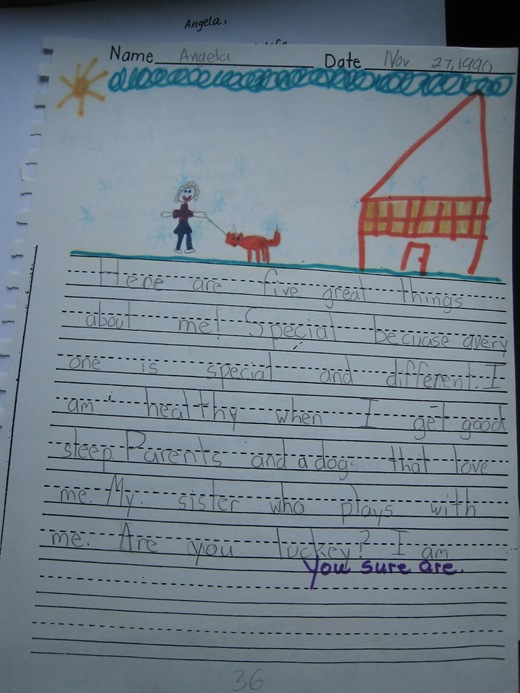 Angela,
Name Angela Date Nov 27, 1990
Here are five great things
about me! Special becuase avery
one is special and different. I
am healthy when I get good
sleep Parents and a dog. that love
me. My sister who plays with
me. Are you luckey? I am
You sure are.
36